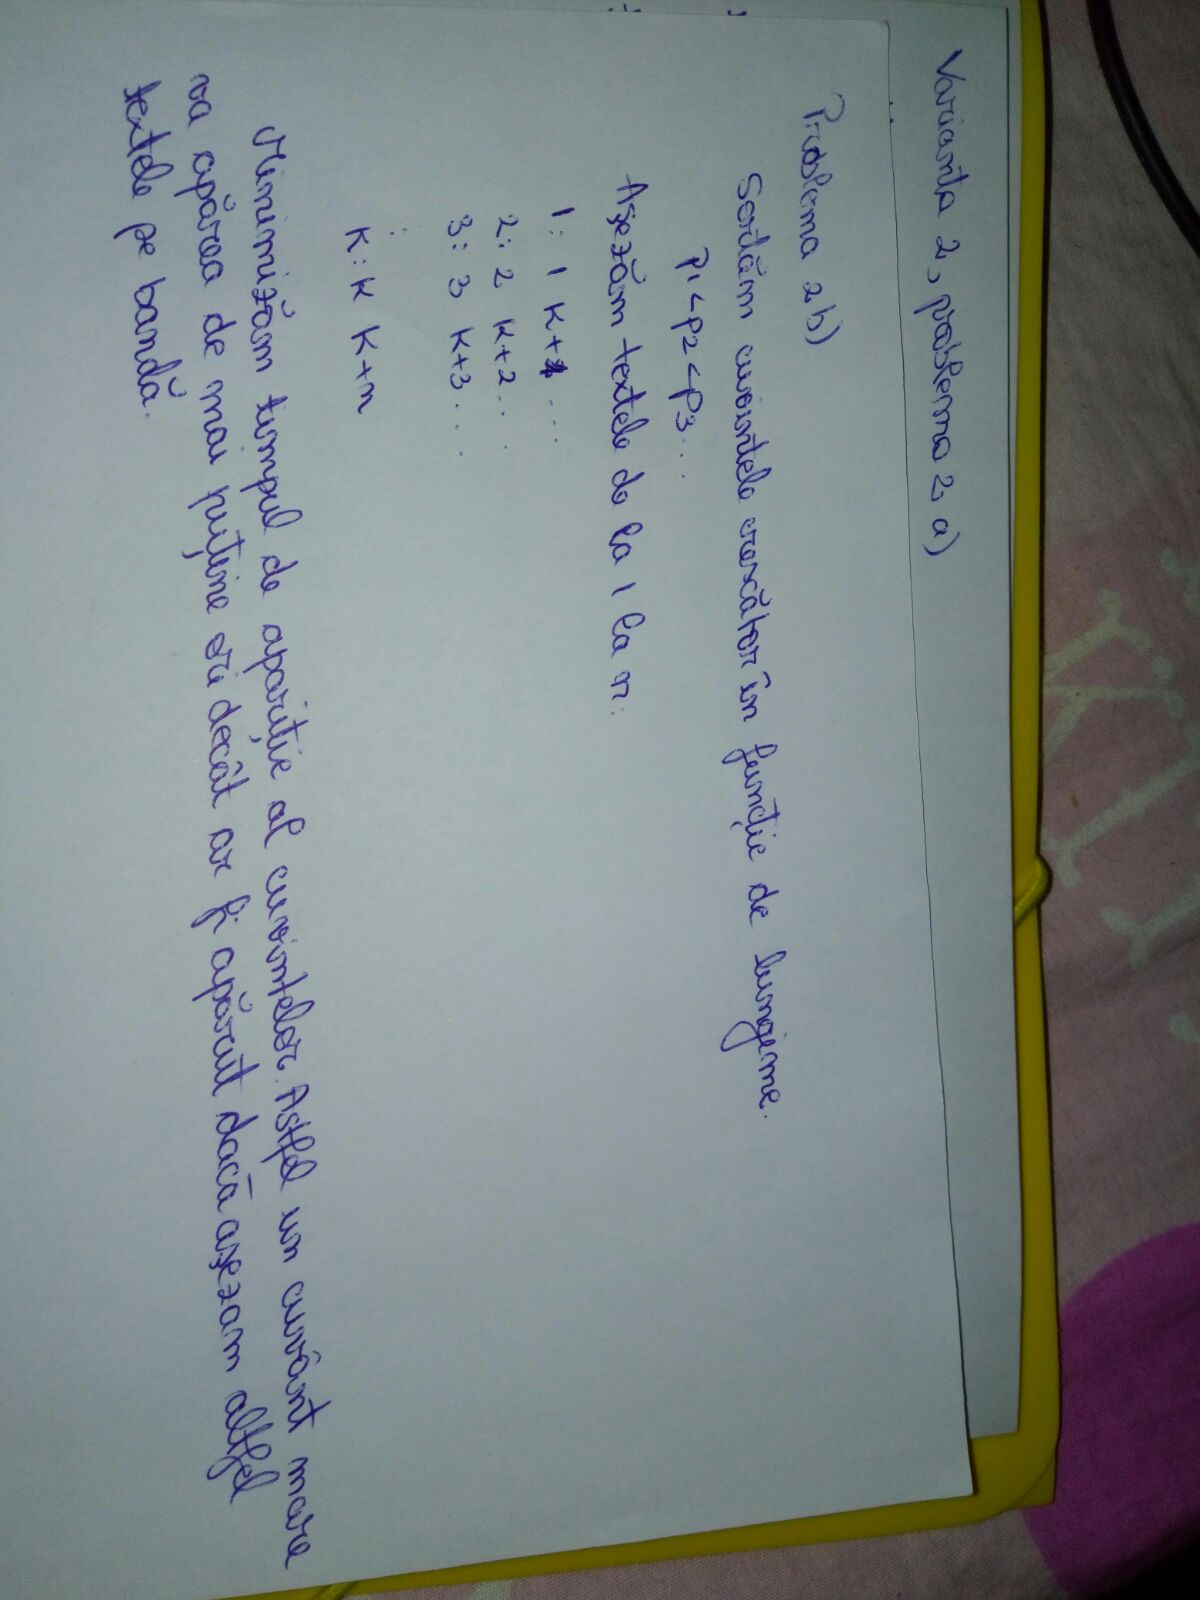 Varianta 2, problema 2 a)
Problema 2b)
Sortăm cuvintele crescător în funcție de lungime.
p1 < p2 < p3...
Așezăm textele de la 1 la n:
1: 1 K+1 ...
2: 2 K+2 ...
3: 3 K+3 ...
⋮
K: K K+n
Minimizăm timpul de apariție al cuvintelor. Astfel un cuvânt mare
va apărea de mai puține ori decât ar fi apărut dacă așezam altfel
textele pe bandă.